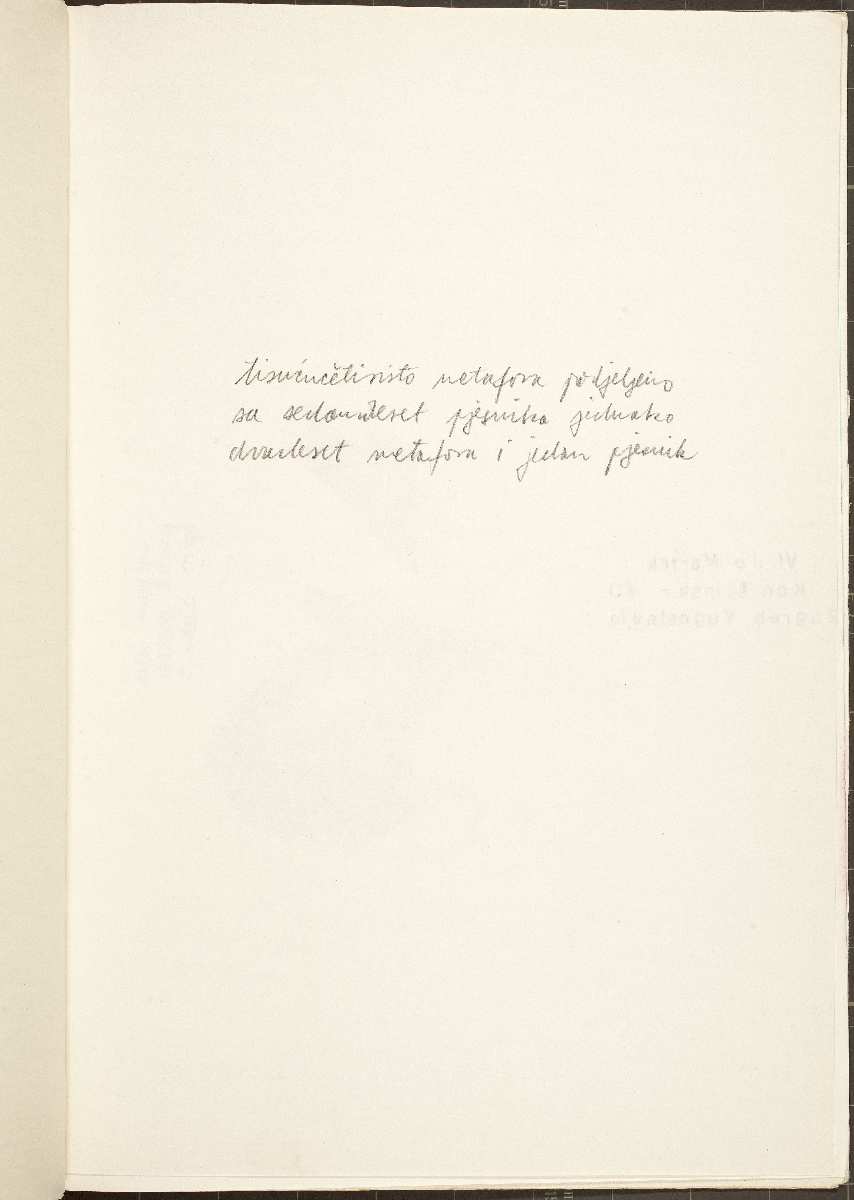 tisućučetiristo metafora podjeljeno
sa sedamdeset pjesnika jednako
dvadeset metafora i jedan pjesnik